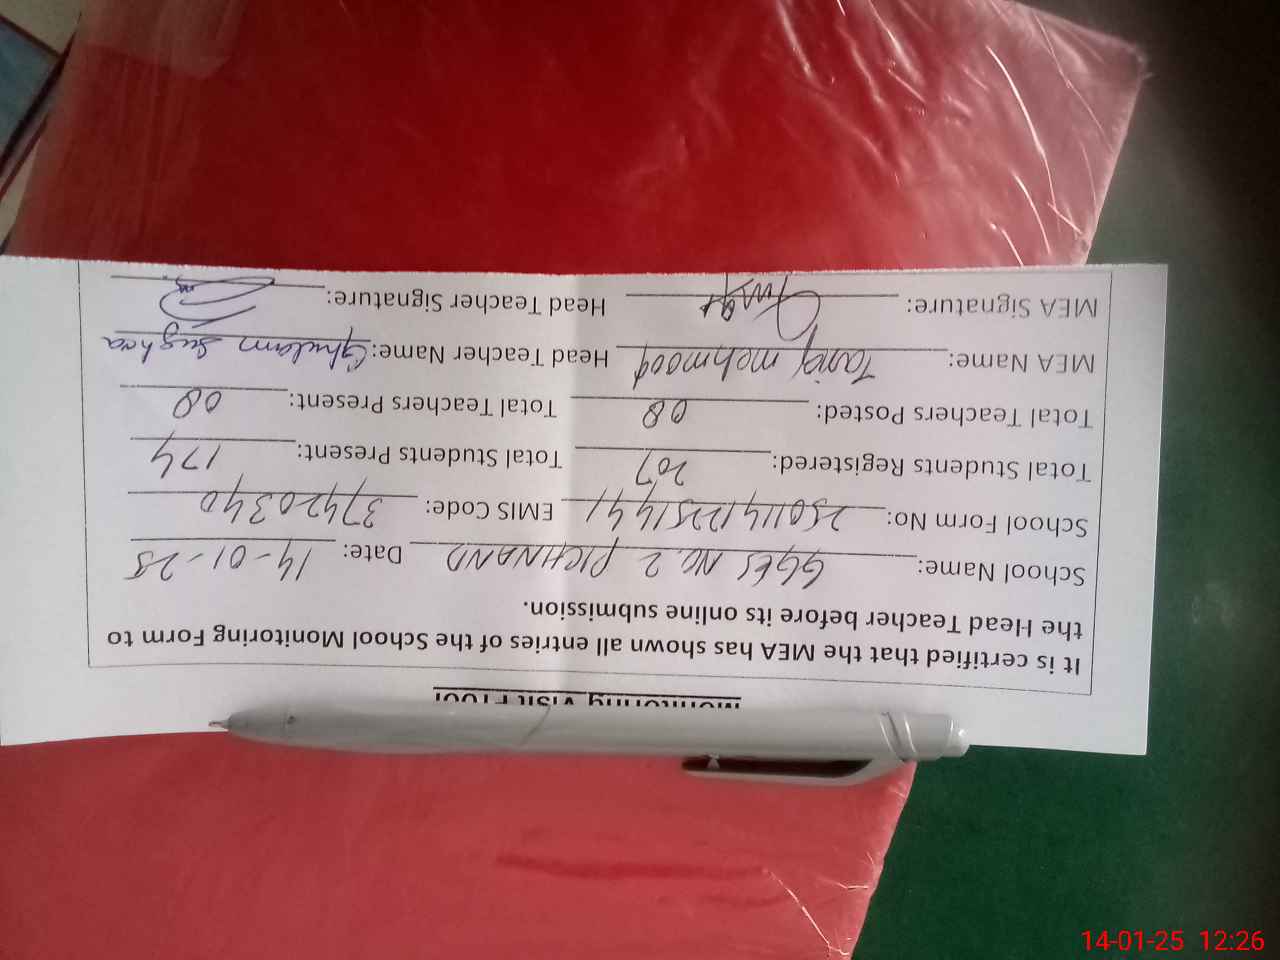 Monitoring Visit Proof
It is certified that the MEA has shown all entries of the School Monitoring Form to
the Head Teacher before its online submission.
School Name: GGES NO. 2 PICHNAND Date: 14-01-25
School Form No: 25011412251441 EMIS Code: 37420340
Total Students Registered: 207 Total Students Present: 174
Total Teachers Posted: 08 Total Teachers Present: 08
MEA Name: Tariq mehmood Head Teacher Name: Ghulam Sughra
MEA Signature: Head Teacher Signature:
14-01-25 12:26